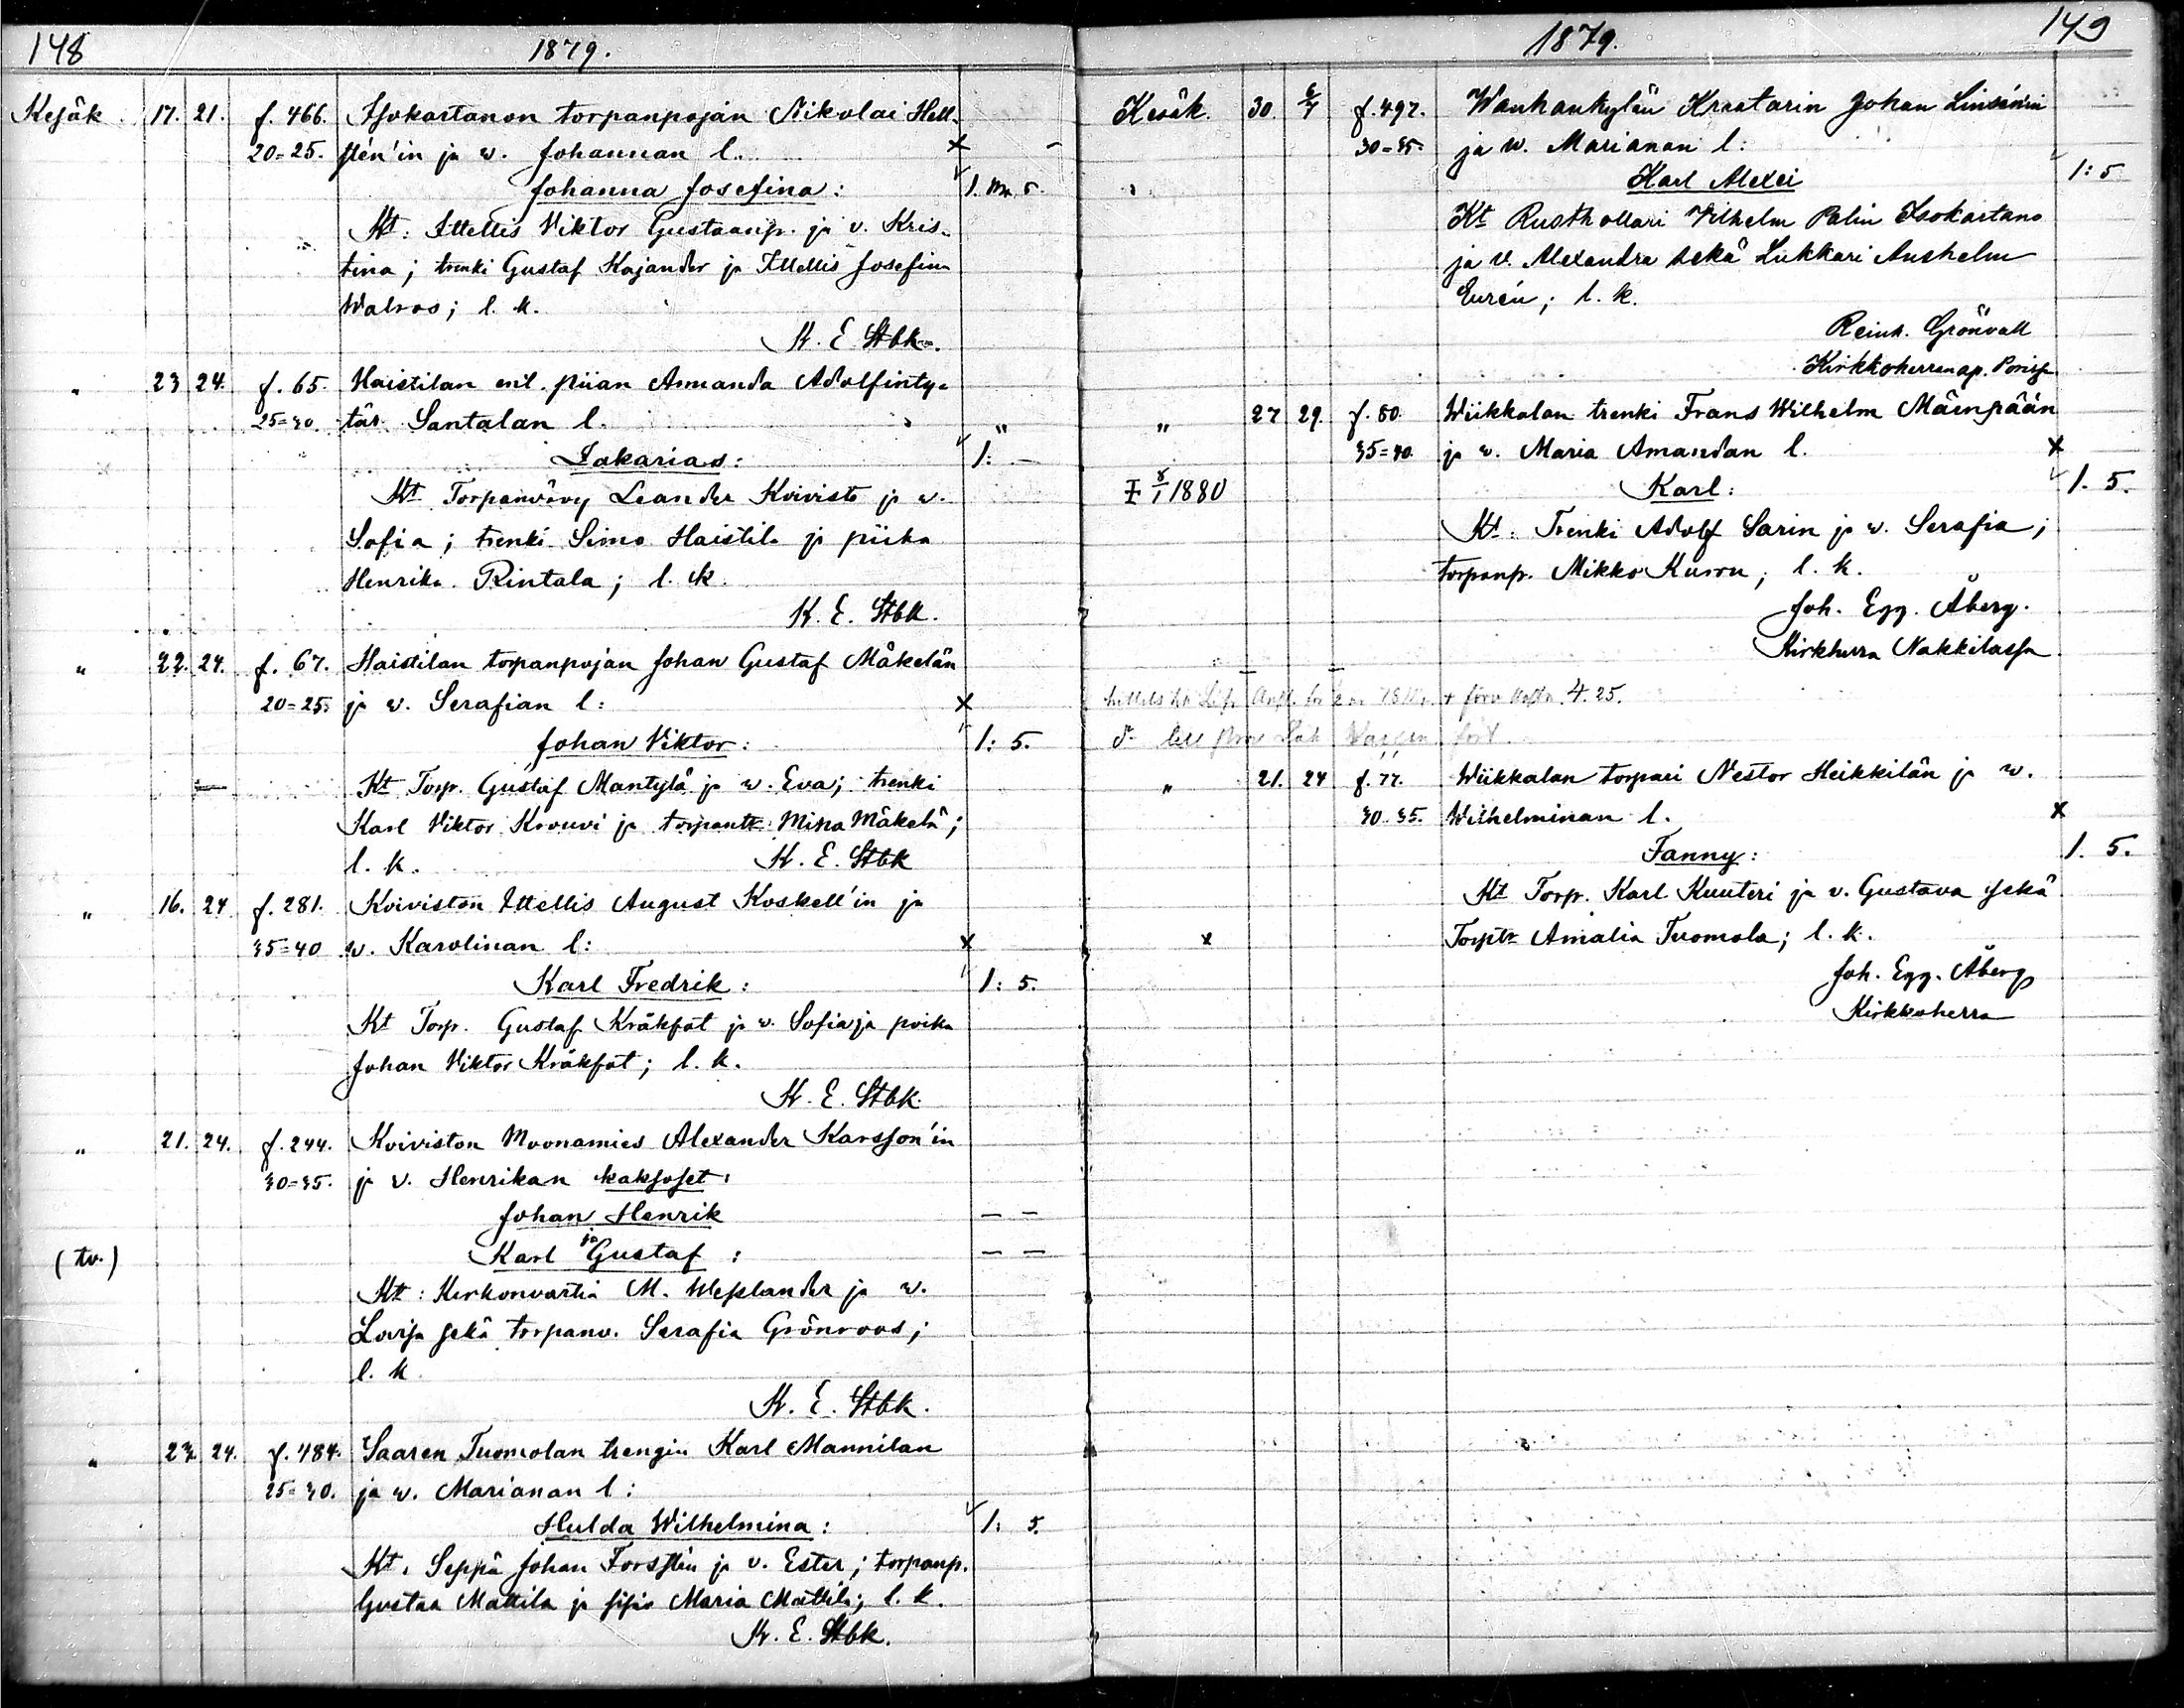 148
1879.
Kesäk 17. 21. f. 466. Isokartanon torpanpojan Nikolai Hell-
20=25. stén'in ja w. Johannan l. x
Johanna Josefina: 1. Mk 5.
Kt: Ittellis Viktor Gustaanp. ja v. Kris-
tina; trenki Gustaf Kajander ja Ittellis Josefina
Walros; l. k.
K. E. Stbk.
" 23 24. f. 65. Haistilan piian Amanda Adolfinty-
25=30. tär Santalan l. "
Sakarias: 1: —
Kt Torpanvävy Leander Koivisto ja w.
Sofia; trenki Simo Haistila ja piika
Henrika Rintala; l. k.
K. E. Stbk.
" 22. 24. f. 67. Haistilan torpanpojan Johan Gustaf Mäkelän
20=25. ja w. Serafian l: x
Johan Viktor: 1: 5.
Kt Torp. Gustaf Mantylä ja w. Eva; trenki
Karl Viktor Krouvi ja torpantr Mina Mäkelä;
l. k. K. E. Stbk
" 16. 24 f. 281. Koiviston Ittellis August Koskell'in ja
35=40 w. Karolinan l: x
Karl Fredrik: 1: 5.
Kt Torp. Gustaf Kråkfot ja w. Sofia ja poika
Johan Viktor Kråkfot; l. k.
K. E. Stbk.
" 21. 24. f. 244. Koiviston Moonamies Alexander Karsson'in
30=35. ja v. Henrikan kaksoset:
Johan Henrik — —
ja
(tv.) Karl Gustaf: — —
Kt: Kirkonvartia M. Weslander ja w.
Lovisa sekä torpanv. Serafia Grönroos;
l. k
K. E. Stbk.
" 23. 24. f. 484. Saaren Tuomolan trengin Karl Mannilan
25=30. ja w. Marianan l:
Hulda Wilhelmina: 1: 5.
Kt. Seppä Johan Forsstén ja v. Ester; torpanp.
Gustaa Mattila ja sisar Maria Mattila; l. k.
K. E. Stbk.
1879.
149
Kesäk. 30. 6/7 f. 497. Wanhankylän Kraatarin Johan Linsénin
30=35. ja w. Marianan l:
Karl Alexei 1: 5
Kt Rusthollari Vilhelm Palin Isokartano
ja v. Alexandra sekä Lukkari Anshelm
Eurén; l. k.
Reinh. Grönvall
Kirkkoherranap. Porissa
" 27 29. f. 80. Wiikkalan trenki Frans Wilhelm Mäenpään
35=40. ja w. Maria Amandan l. x
8/1 1880 Karl: 1. 5.
Kt: Trenki Adolf Sarin ja w. Serafia;
torpanp. Mikko Kurru; l. k.
Joh. Egg. Åberg.
Kirkherra Nakkilassa
4. 25.
" 21. 24 f. 77. Wiikkalan torpari Nestor Heikkilän ja w.
30. 35. Wilhelminan l. x
Fanny: 1. 5.
Kt Torp. Karl Kuuteri ja v. Gustava sekä
x Torptr Amalia Tuomola; l. k.
Joh. Egg. Åberg
Kirkkoherra